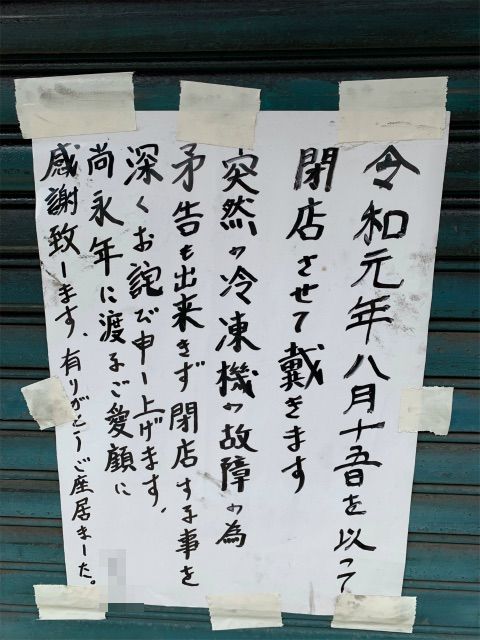 令和元年八月十五日を以って
閉店させて戴きます
突然の冷凍機の故障の為
矛告も出来きず閉店する事を
深くお詫び申し上げます、
尚永年に渡るご愛顧に
感謝致します、有りがとうご座居ました。